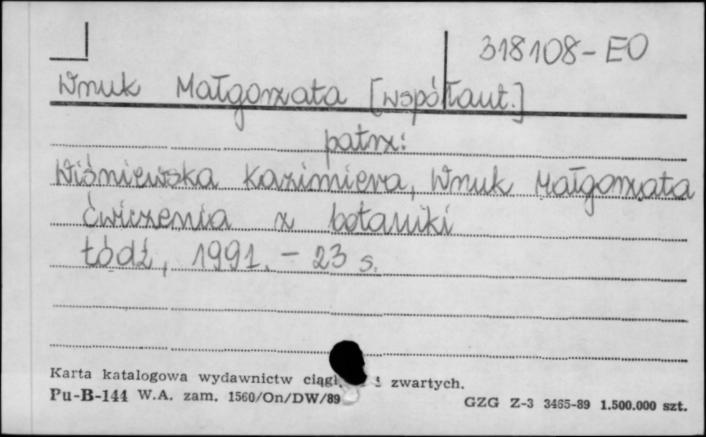 318108-EO
Wnuk Małgorzata [współaut.]
patrz:
Wiśniewska Kazimiera, Wnuk Małgorzata
Ćwiczenia z botaniki
Łódź, 1991. - 23 s.
Karta katalogowa wydawnictw ciągł. i zwartych.
Pu-B-144 W.A. zam. 1560/On/DW/89
GZG Z-3 3465-89 1.500.000 szt.